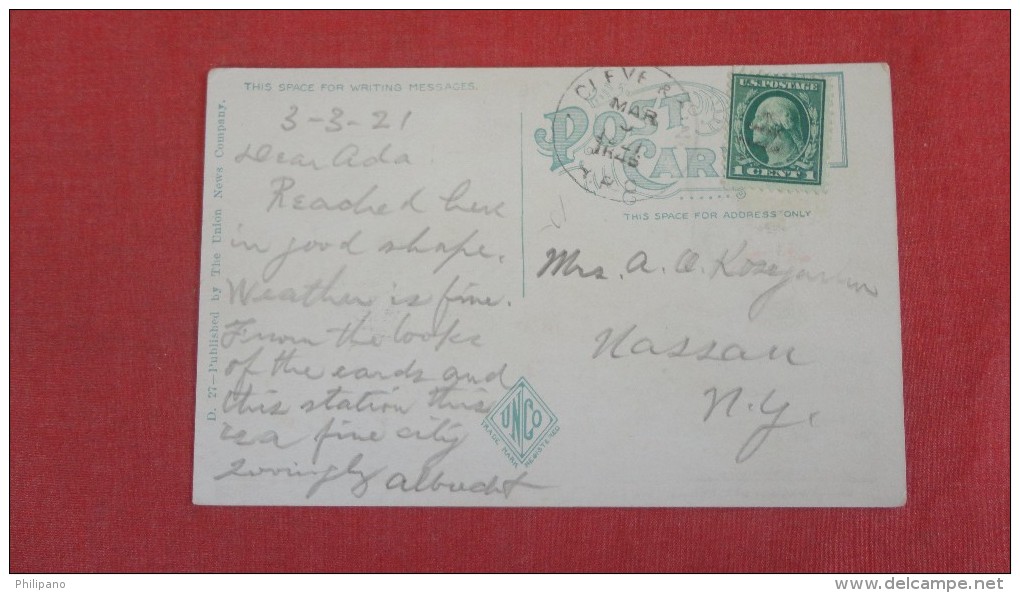 THIS SPACE FOR WRITING MESSAGES.
3-3-21
Dear Ada
Reached here
in good shape.
Weather is fine.
From the looks
of the cards and
this station this
is a fine city
Lovingly Albrecht
D. 27—Published by The Union News Company.
UNCO
TRADE MARK
REGISTERED
POST CARD
CLEVE
MAR
1921
R.P.O.
U.S. POSTAGE
1 CENT 1
THIS SPACE FOR ADDRESS ONLY
Mrs. A. O.
Nassau
N.Y.
Philipano
www.delcampe.net